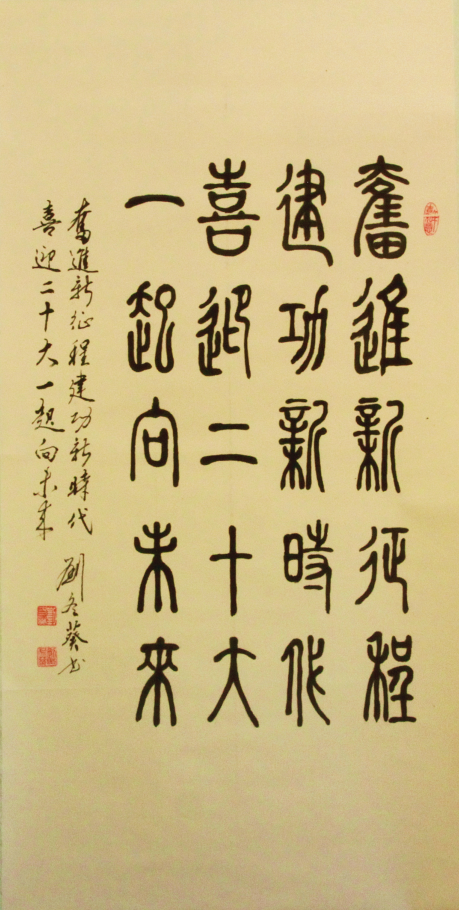 奮進新征程
建功新時代
喜迎二十大
一起向未來
奮進新征程建功新時代
喜迎二十大一起向未来
劉冬葵书